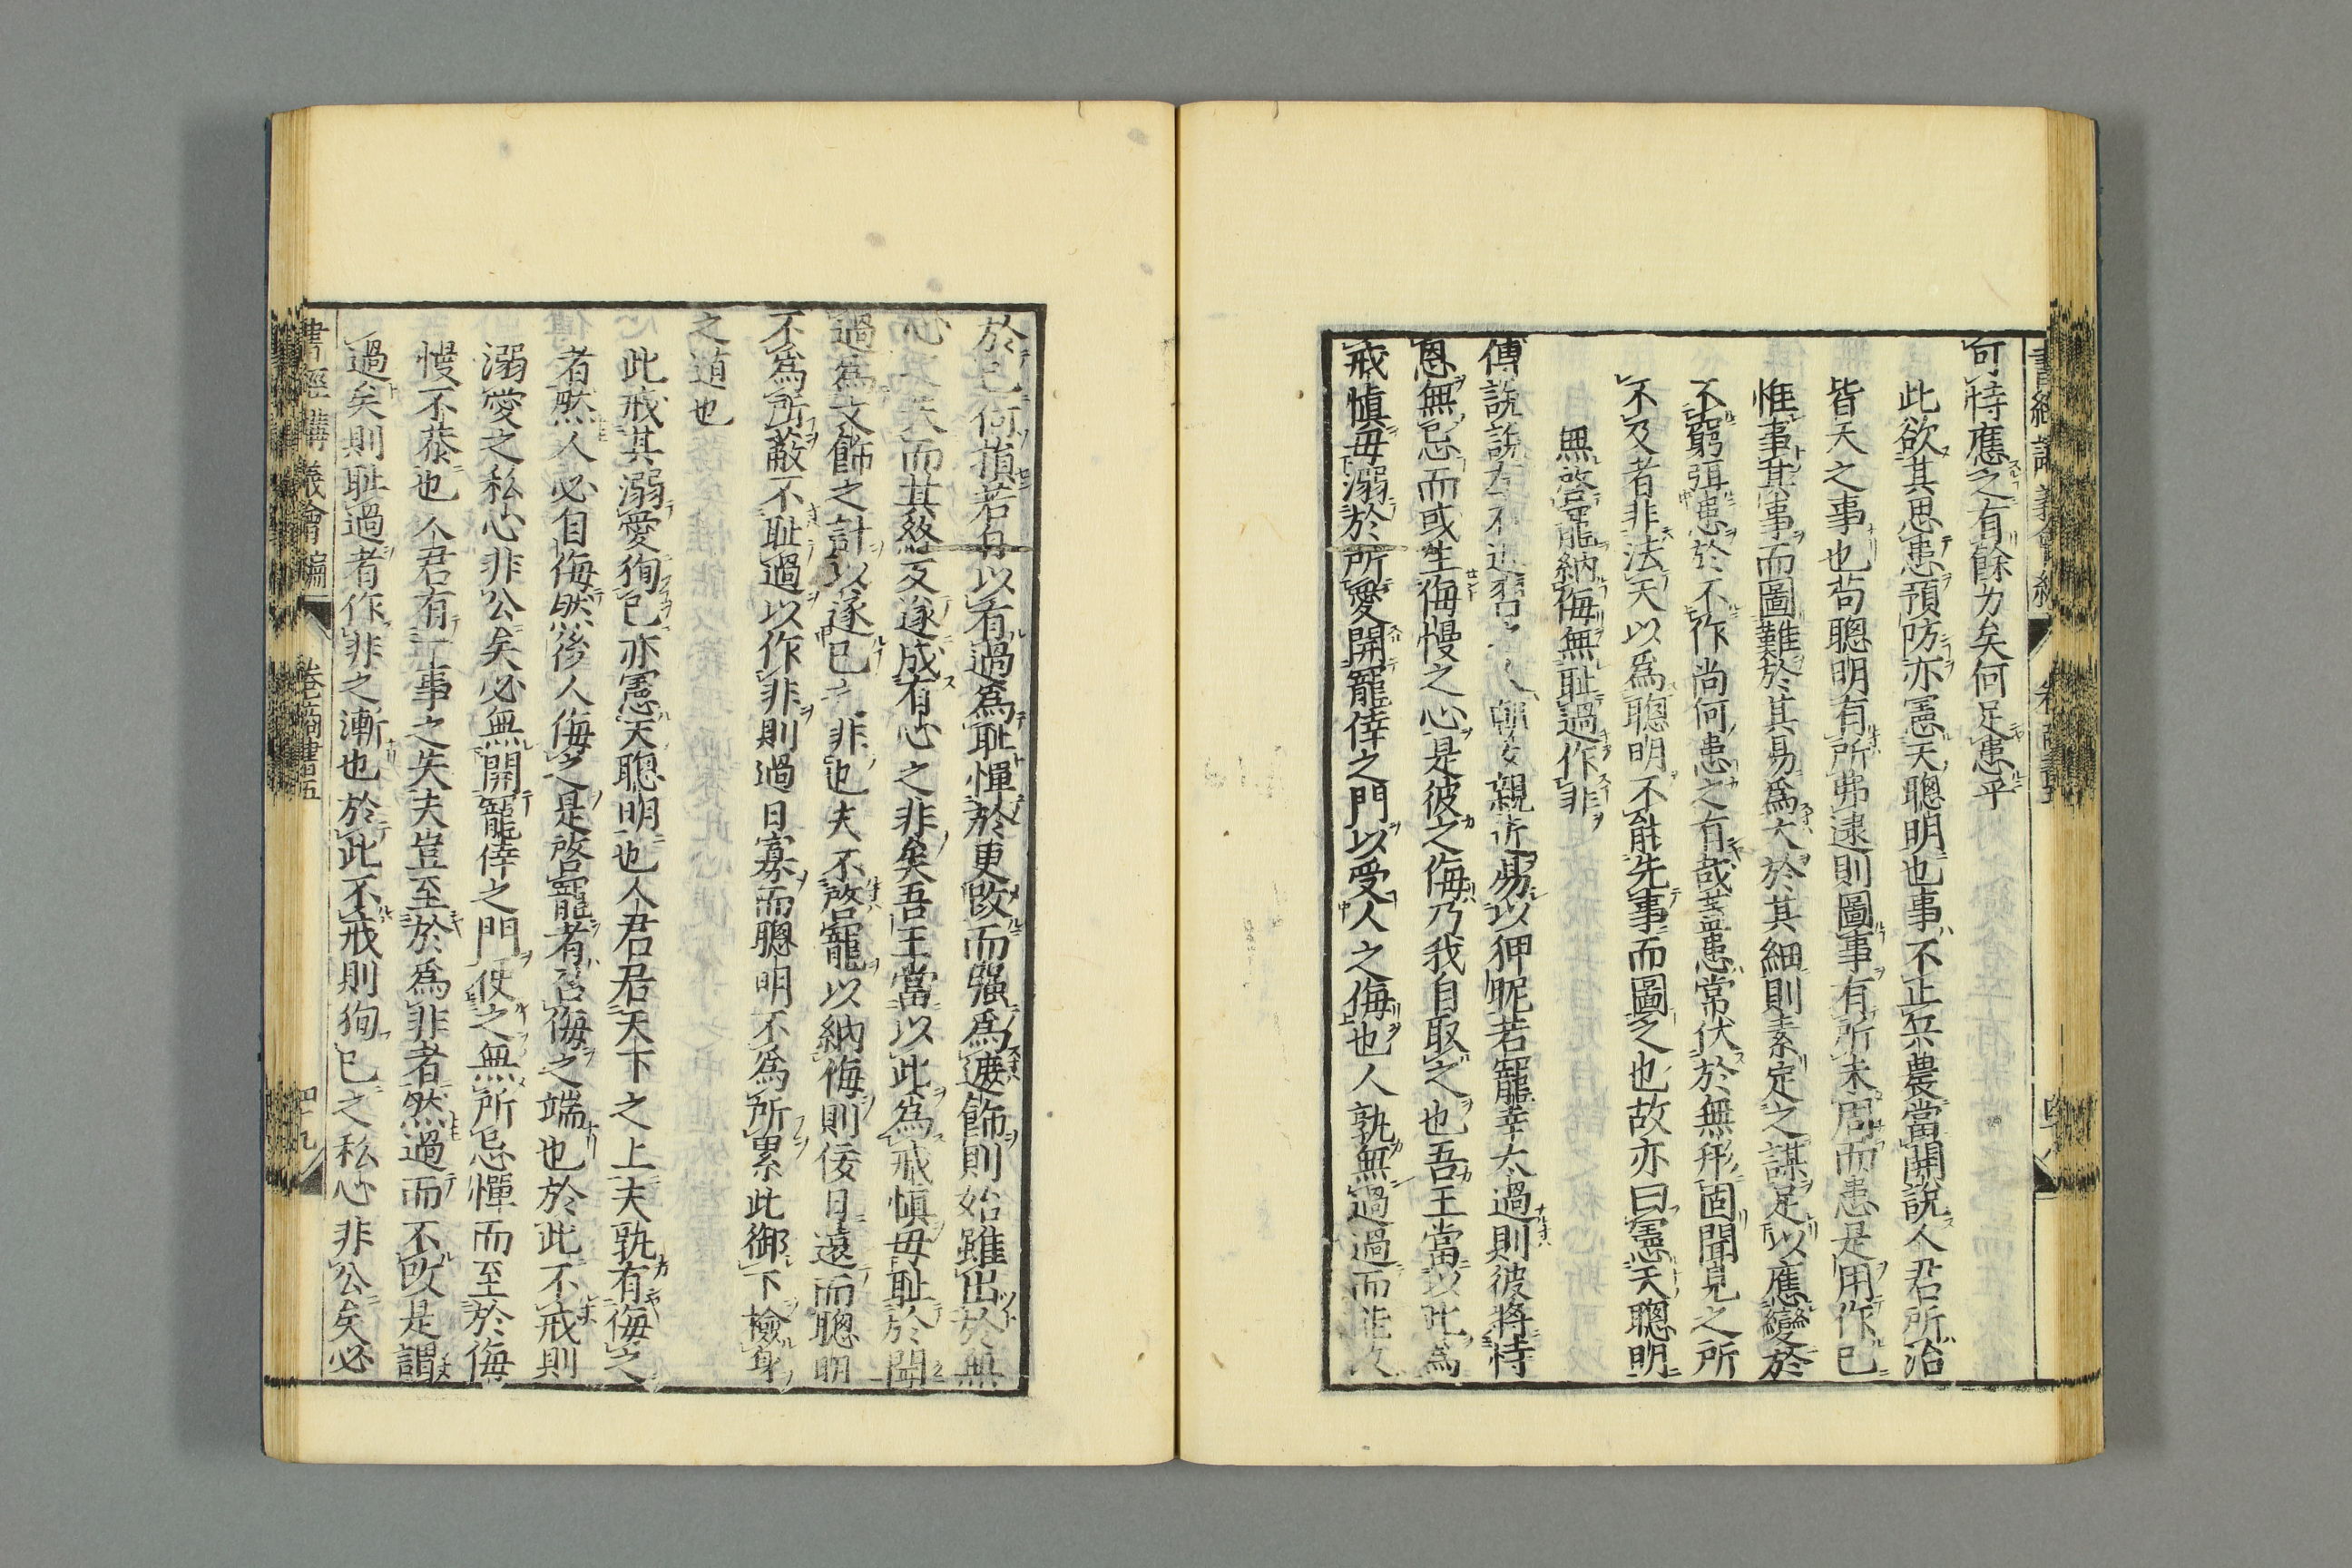 可恃應之有餘力矣何足患乎
此欲其思患預防亦憲天聰明也事不正兵農當開說人君所治
皆天之事也苟聰明有所弗逮則圖事有所未周而患是用作已
惟事其事而圖難於其易為大於其細則素定之謀足以應變於
不窮弭患於不作尚何患之有哉蓋患常伏於無形固聞見之所
不及者非法天以為聰明不能先事而圖之也故亦曰憲天聰明
無啓寵納侮無耻過作非
傅說說左 親近易以狎昵若寵幸太過則彼將恃
恩無忌而或生侮慢之心是彼之侮乃我自取之也吾王當以此為
戒慎毋溺於所愛開寵倖之門以受人之侮也人孰無過過而能改
於己何損若自以有過為耻憚於更改而強為遮飾則始雖出於無
心之失而其終反遂成有心之非矣吾王當以此為戒慎毋耻於聞
過為文飾之計以遂己之非也夫不啓寵以納侮則佞日遠而聰明
不為所蔽不耻過以作非則過日寡而聰明不為所累此御下檢身
之道也
此戒其溺愛徇己亦憲天聰明也人君居天下之上夫孰有侮之
者然人必自侮然後人侮之是啓寵者召侮之端也於此不戒則
溺愛之私心非公矣必無開寵倖之門使之無所忌憚而至於侮
慢不恭也人君有一事之失夫豈至於為非者然過而不改是謂
過矣則耻過者作非之漸也於此不戒則徇己之私心非公矣必
書經講義會編 卷 商書五 四十九